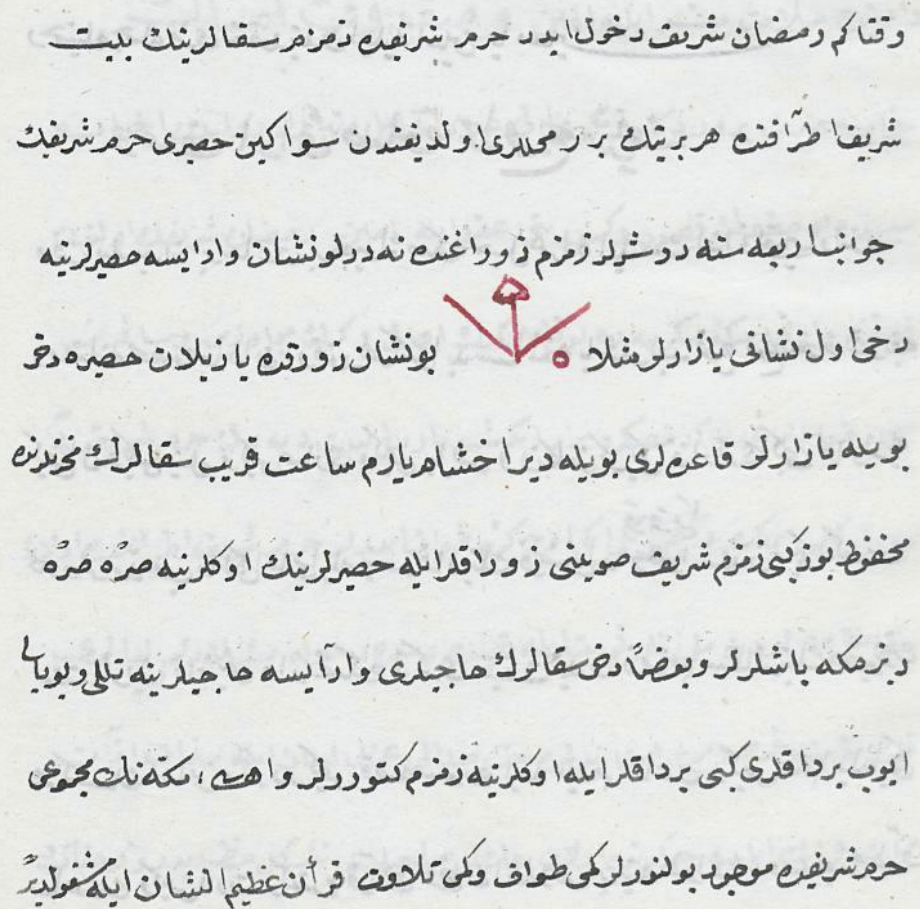 وقتاكم رمضان شريف دخول ايدر حرم شريفده زمزم سقالرينك بيت
شريف اطرافنده هر برينك برر محللرى اولديغندن سواكين حصيرى حرم شريفك
جوانب اربعه سنه دوشرلر زمزم زوراغنده نه درلو نشان وار ايسه حصيرلرينه
دخى اول نشانى يازارلر مثلا بو نشان زورقده يازيلان حصيره دخى
بويله يازارلر قاعده لرى بويله دير اخشامه يارم ساعت قريب سقالرك مخزنلرنده
محفوظ بوز كبى زمزم شريف صوينى زوراقلر ايله حصيرلرينك اوكلرينه صره صره
ديزمكه باشلرلر وبعضاً دخى سقالرك حاجيلرى وار ايسه حاجيلرينه تللى وبويالى
ايوب برداقلرى كبى برداقلر ايله اوكلرينه زمزم كتوررلر واهـ مكه نك مجموعى
حرم شريفده موجود بولنورلر كمى طواف وكمى تلاوت قرأن عظيم الشان ايله مشغولدر